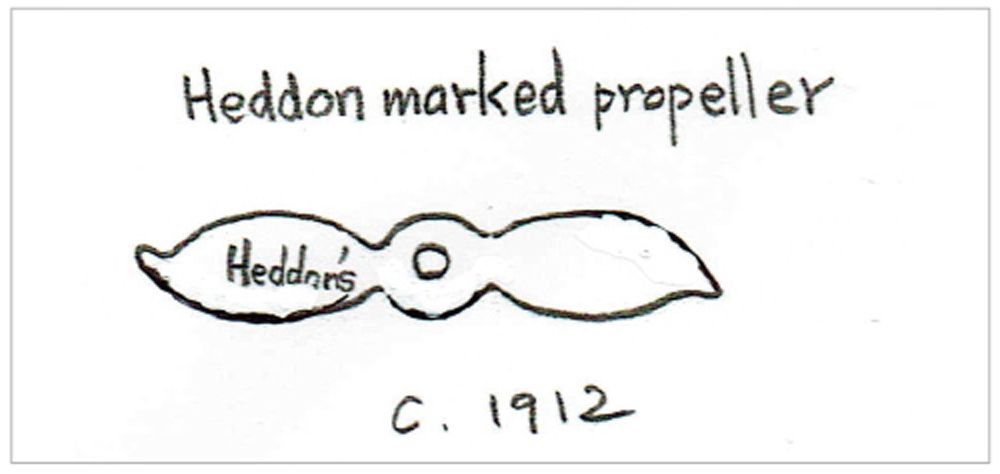 Heddon marked propeller
Heddon's
C. 1912